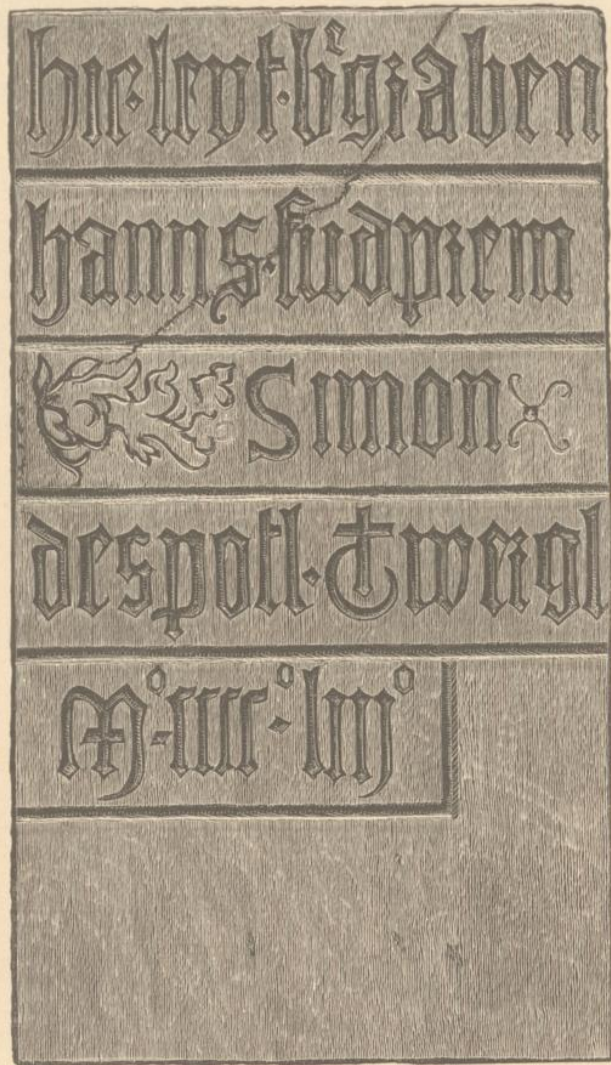 hie·leyt·bᵉgraben
hanns·sudprem
Simon
despotl· weigl
M°·cccc°·liij°